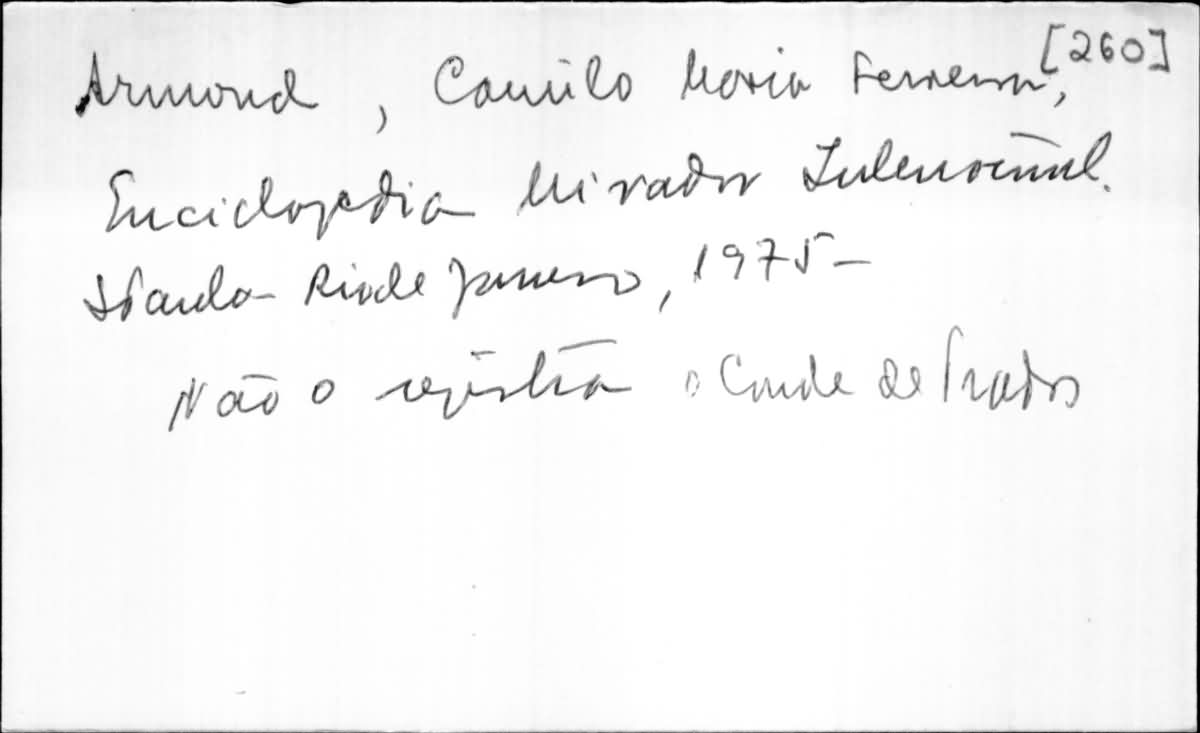 Armond, Camilo Maria Ferreira, [260]
Enciclopedia Mirador Internacional.
S Paulo - Rio de Janeiro, 1975 -
Não o registra o Conde de Prados